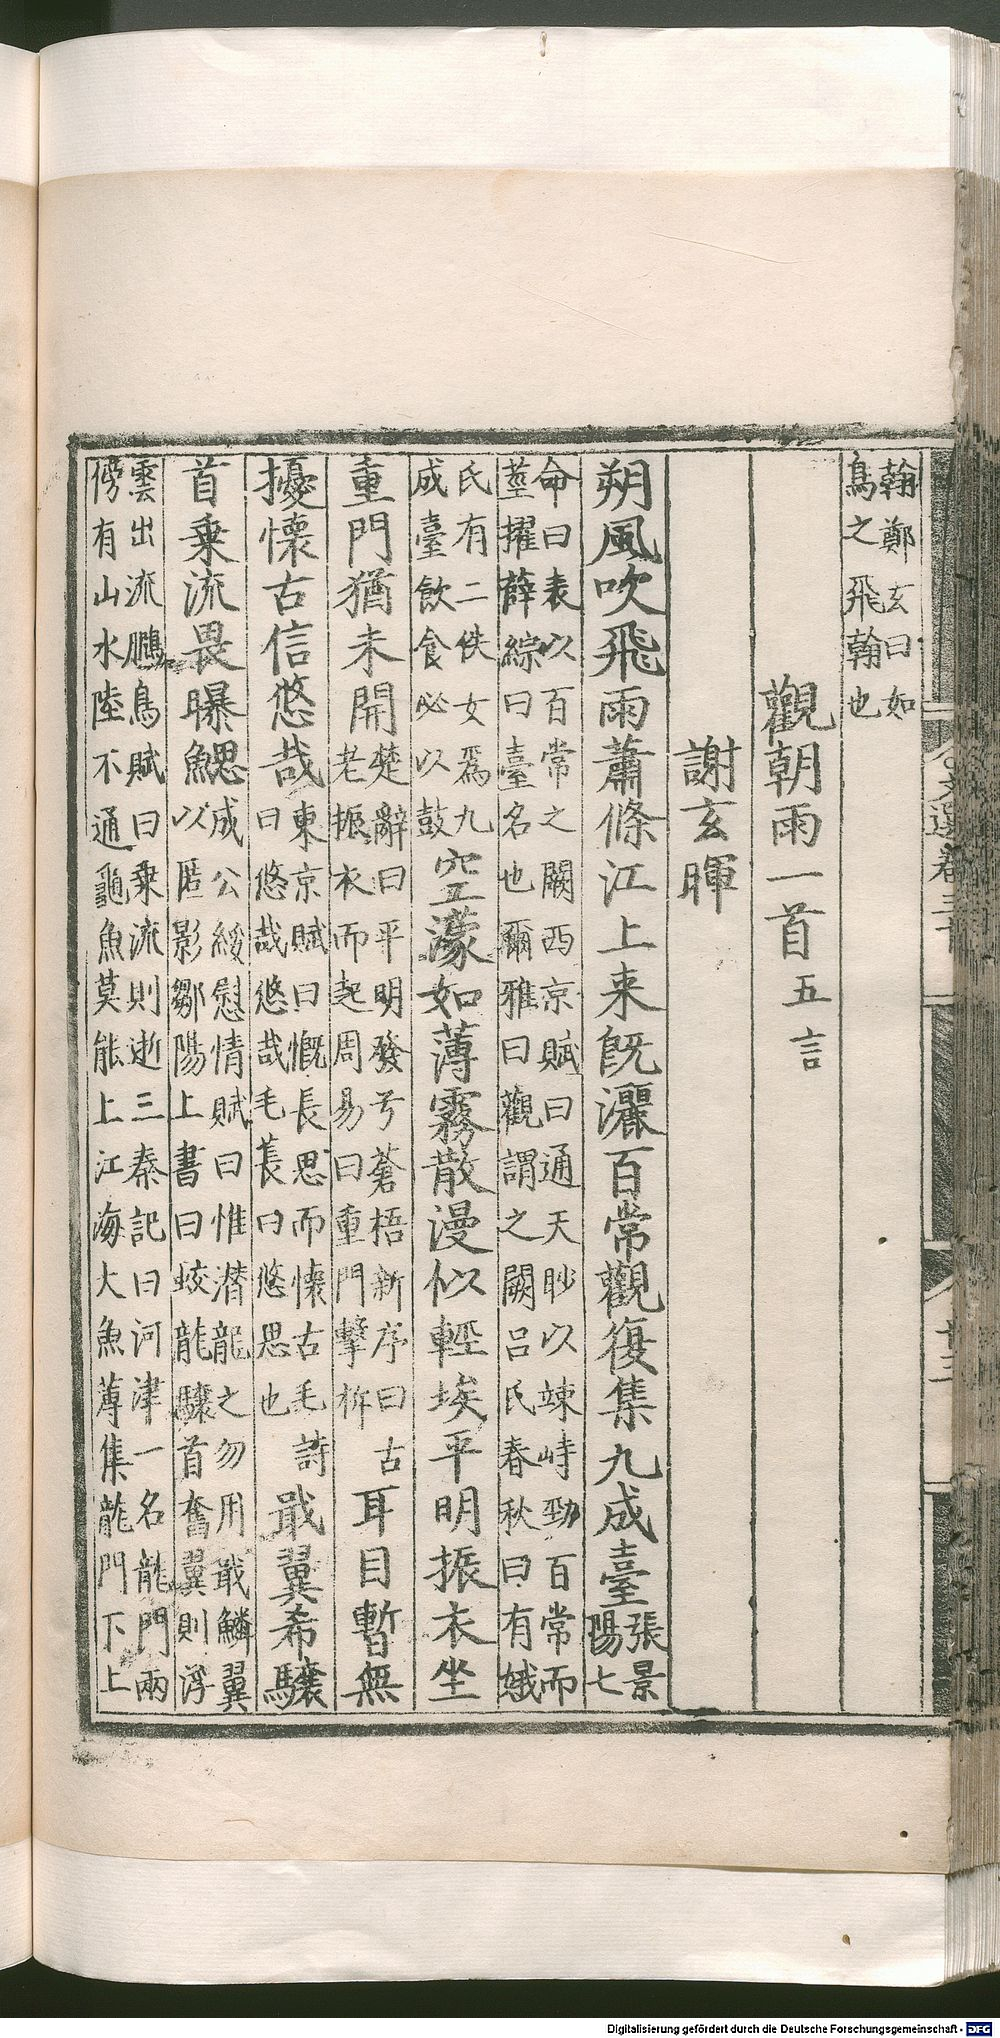 翰鄭玄曰如
鳥之飛翰也
觀朝雨一首五言
謝玄暉
朔風吹飛雨蕭條江上来旣灑百常觀復集九成臺張景
陽七
命曰表以百常之闕西京賦曰通天眇以竦峙勁百常而
莖擢薛綜曰臺名也爾雅曰觀謂之闕吕氏春秋曰有娀
氏有二佚女爲九
成臺飲食必以鼓空濛如薄霧散漫似輕埃平明振衣坐
重門猶未開楚辭曰平明發兮蒼梧新序曰古
老振衣而起周易曰重門擊柝耳目暫無
擾懷古信悠哉東京賦曰慨長思而懷古毛詩
曰悠哉悠哉毛萇曰悠思也戢翼希驤
首乗流畏曝鰓成公綏慰情賦曰惟潜龍之勿用戢鱗翼
以匿影鄒陽上書曰蛟龍驤首奮翼則浮
雲出流鵩鳥賦曰乗流則逝三秦記曰河津一名龍門兩
傍有山水陸不通龜魚莫能上江海大魚薄集龍門下上
文選卷三十
廿三
Digitalisierung gefördert durch die Deutsche Forschungsgemeinschaft - DFG